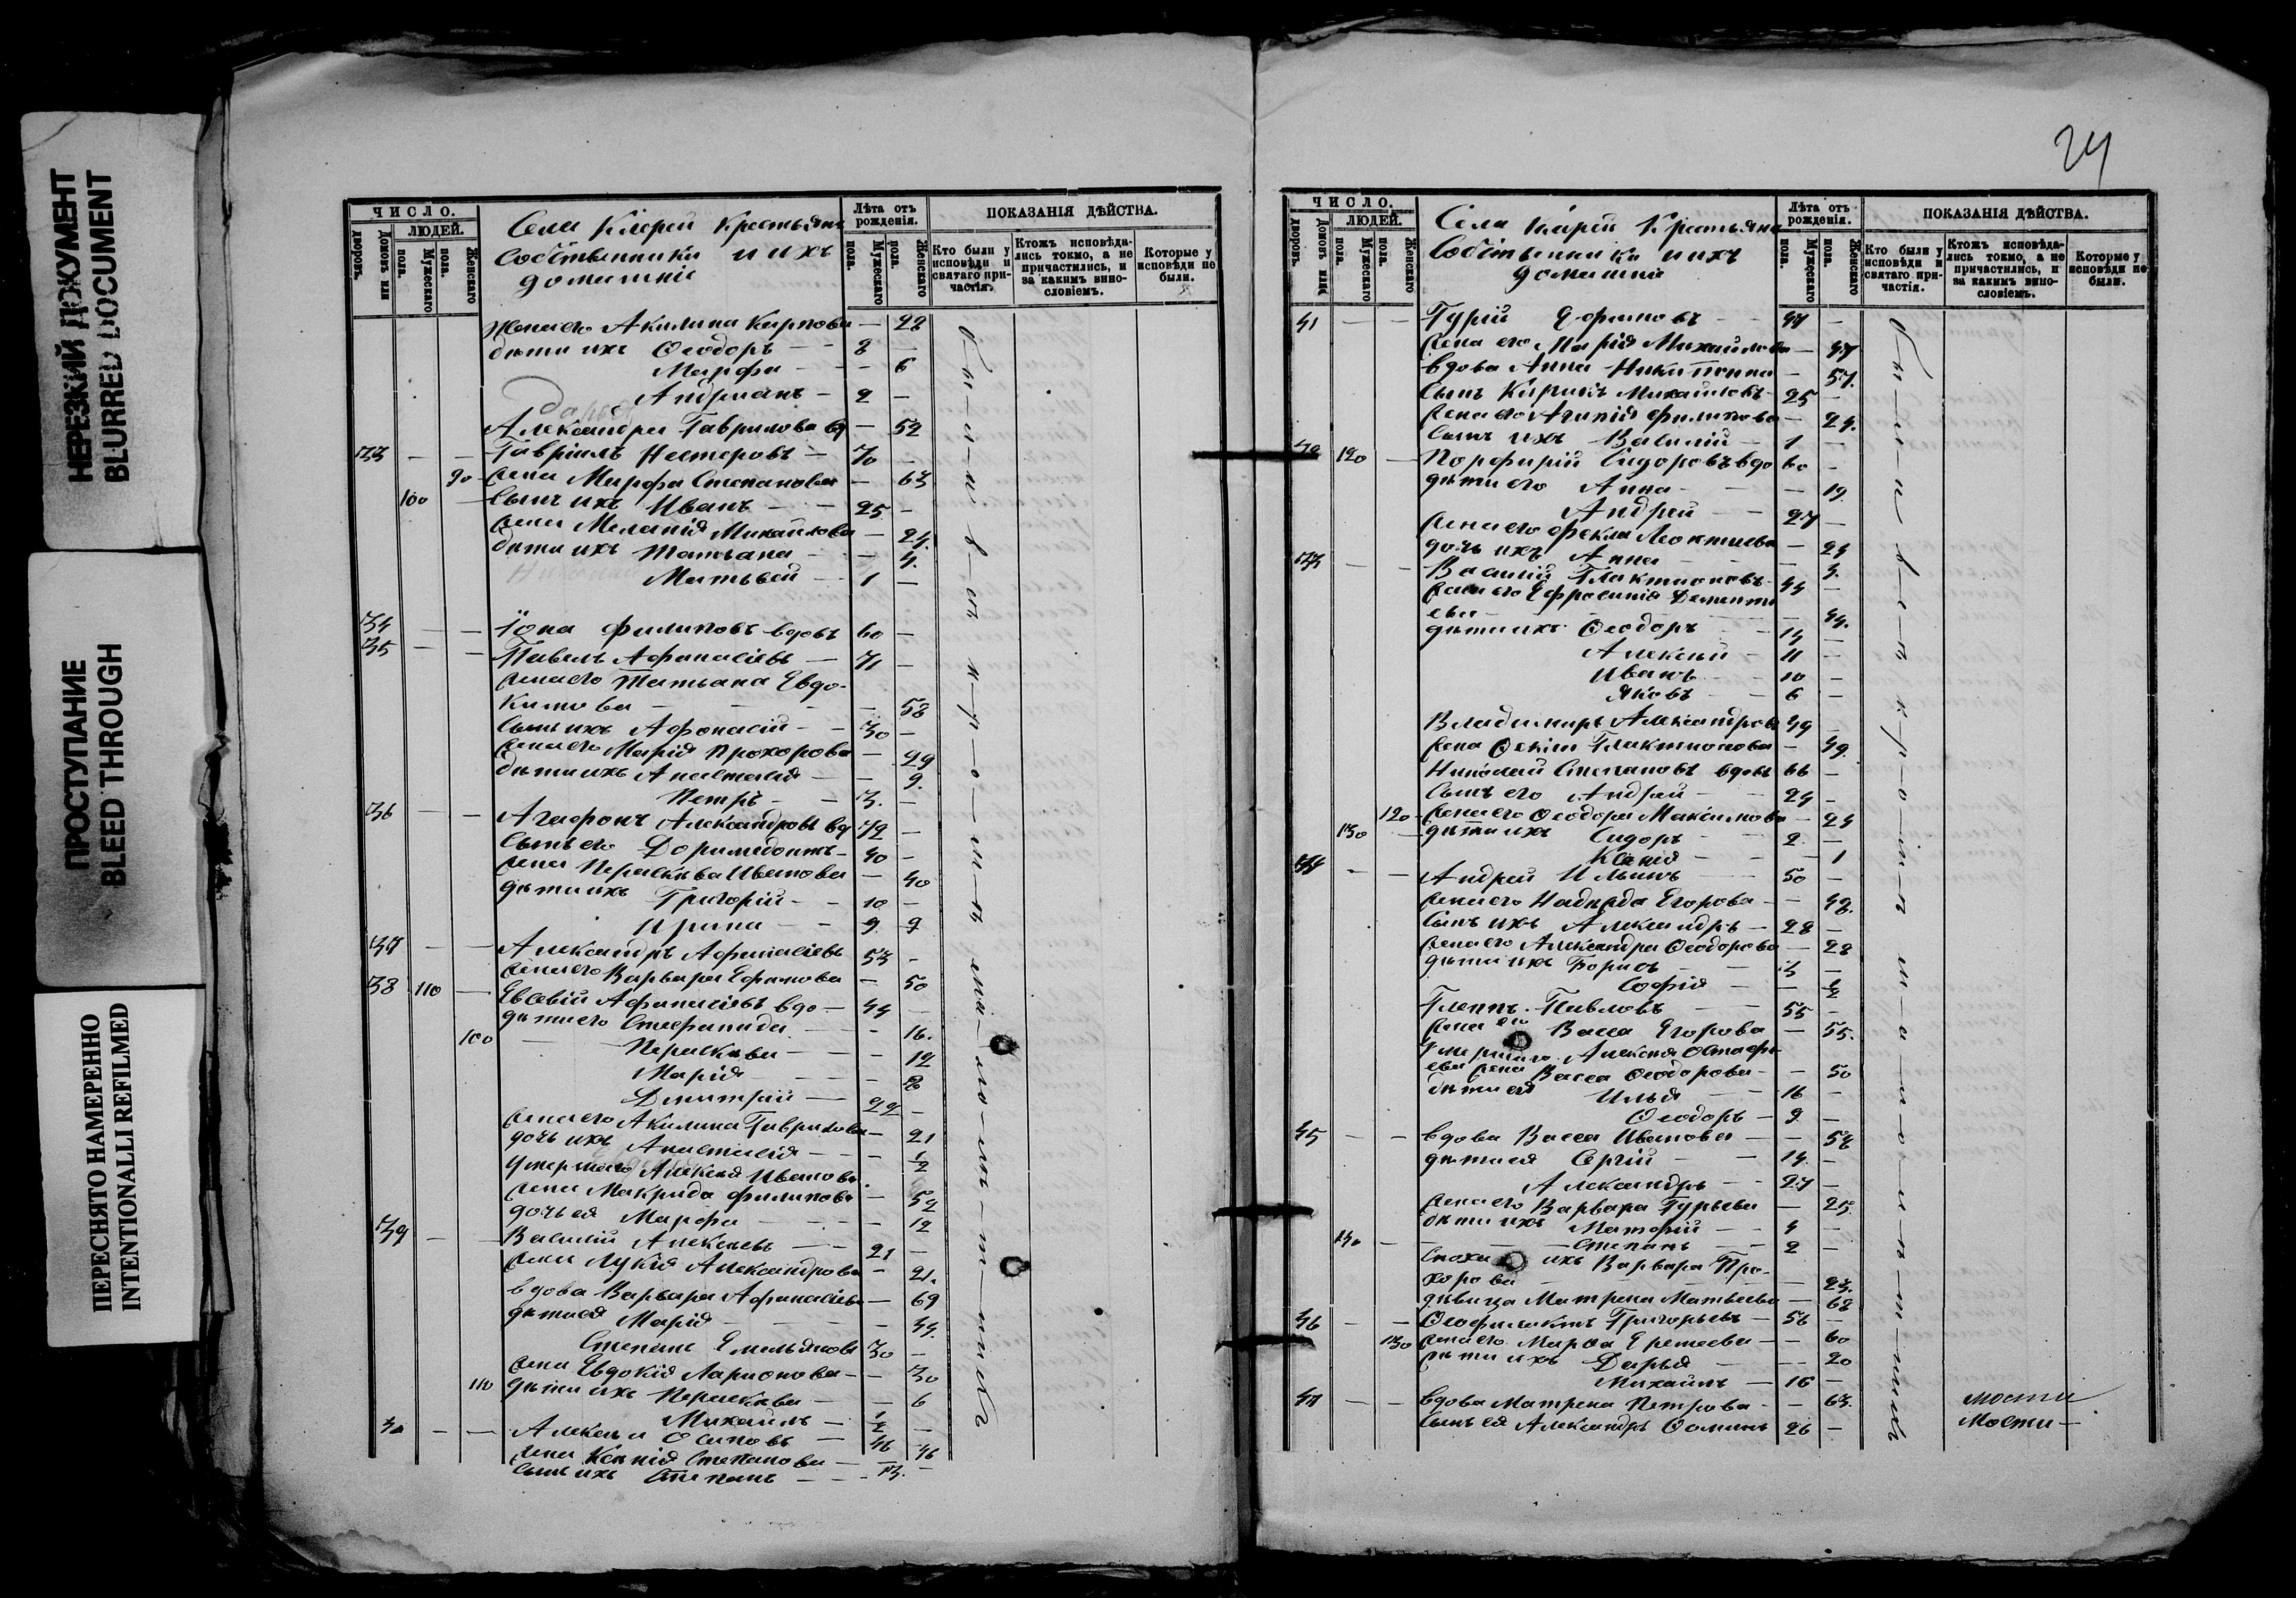 НЕРЕЗКИЙ ДОКУМЕНТ
BLURRED DOCUMENT
ПРОСТУПАНИЕ
BLEED THROUGH
ПЕРЕСНЯТО НАМЕРЕННО
INTENTIONALLI REFILMED
ЧИСЛО.
ЛЮДЕЙ.
Домовъ или дворовъ.
Мужескаго пола.
Женскаго пола.
Села Кіерей Крестьяне
Собственники и ихъ
домашніе
Лѣта отъ рожденія.
Мужескаго пола.
Женскаго пола.
ПОКАЗАНІЯ ДѢЙСТВА.
Кто были у исповѣди и святаго причастія.
Ктожъ исповѣдались токмо, а не причастились, и за какимъ винословіемъ.
Которые у исповѣди не были.
жена его Акилина Карпова — 28
дѣти ихъ Ѳеодоръ — 8 —
Марфа — — 6
Андріанъ — 2 —
Александра Гаврилова вд — 52
33 — — Гавріилъ Нестеровъ — 70 —
90 жена Марфа Степанова — 63
100 — сынъ ихъ Иванъ — 25 —
жена Меланія Михайлова — 24
дѣти ихъ Татьяна — — 4
Матвѣй — 1 —
34 — — Іона Филиповъ вдовъ 60 —
35 — — Павелъ Афанасіевъ — 71 —
жена его Татьяна Евдо-
кимова — — 58
сынъ ихъ Афонасій — 30 —
жена его Марія Прохорова — 29
дѣти ихъ Анастасія — — 9
Петръ — 3 —
36 — — Агафонъ Александровъ вд 72 —
сынъ его Доримедонтъ — 40 —
жена Параскева Иванова — 40
дѣти ихъ Григорій — 10 —
Ирина — 9 9
37 — — Александръ Афанасіевъ 53 —
жена его Варвара Ефимова — 50
38 110 — Евсевій Афанасіевъ вдо — 44 —
дѣти его Стефанида — — 16
100 Параскева — — 12
Марія — — 8
Димитрій — 22 —
жена его Акилина Гаврилова — 21
дочь ихъ Анастасія — — 1/2
Умершаго Алексѣя Иванова
жена Макрида Филипова — 52
дочь ея Марфа — — 12
39 — — Василій Алексѣевъ — 21 —
жена Лукія Александрова — 21
вдова Варвара Афанасіева — 69
дѣти ея Марія — — 44
Степанъ Емельяновъ 30 —
жена Евдокія Ларионова — 30
110 дѣти ихъ Параскева — — 6
Михаилъ — 1/2 —
40 — — Алексѣй Осиповъ — 46 —
жена Ксенія Степанова — 46
сынъ ихъ Степанъ — 13 —
24
ЧИСЛО.
ЛЮДЕЙ.
Домовъ или дворовъ.
Мужескаго пола.
Женскаго пола.
Села Кіерей Крестьяне
Собственники и ихъ
домашніе
Лѣта отъ рожденія.
Мужескаго пола.
Женскаго пола.
ПОКАЗАНІЯ ДѢЙСТВА.
Кто были у исповѣди и святаго причастія.
Ктожъ исповѣдались токмо, а не причастились, и за какимъ винословіемъ.
Которые у исповѣди не были.
41 — — Гурій Ефимовъ — 47 —
жена его Марія Михайлова — 47
вдова Анна — 57
сынъ Кирикъ Михайловъ 25 —
жена его Агапія Филипова — 24
сынъ ихъ Василій — 1 —
42 120 — Порфирій Сидоровъ вдо 60 —
дѣти его Анна — — 19
Андрей — 27 —
жена его Фекла Леонтиева — 24
дочь ихъ Анна — — 3
43 — — Василій Галактионовъ 44 —
жена его Ефросинія Дементи
ева — — 44
дѣти ихъ Ѳеодоръ — 14 —
Алексѣй — 11 —
Иванъ — 10 —
Яковъ — 6 —
Владимиръ Александровъ 49 —
жена Галактионова — 49
Николай Степановъ вдовъ 66 —
сынъ его Андрей — 24 —
120 жена его Ѳеодора Максимова — 24
130 — дѣти ихъ Сидоръ — 2 —
Ксенія — — 1
44 — — Андрей Ильинъ — 50 —
жена его Надежда Егорова — 48
сынъ ихъ Александръ — 28 —
жена его Александра Ѳеодорова — 28
дѣти ихъ Борисъ — 3 —
Софія — — 1/2
Павловъ — 55 —
жена его Васса Егорова — 55
Умершаго Алексѣя Остафи
ева жена Васса Ѳеодорова — 50
дѣти ея Илья — 16 —
Ѳеодоръ — 9 —
45 — — вдова Васса Иванова — — 58
дѣти ея Сергій — 14 —
Александръ — 27 —
жена его Варвара Гурьева — 25
дѣти ихъ — 4 —
Степанъ — 2 —
ихъ Варвара Про-
хорова — — 23
дѣвица Матрена Матвѣева — 68
46 — — Ѳеофилактъ Григорьевъ — 58 —
130 жена его Марфа Еремеева — 60
дѣти ихъ Дарья — — 20
Михаилъ — 16 —
47 — — вдова Матрена Петрова — — 63
сынъ ея Александръ 26 —